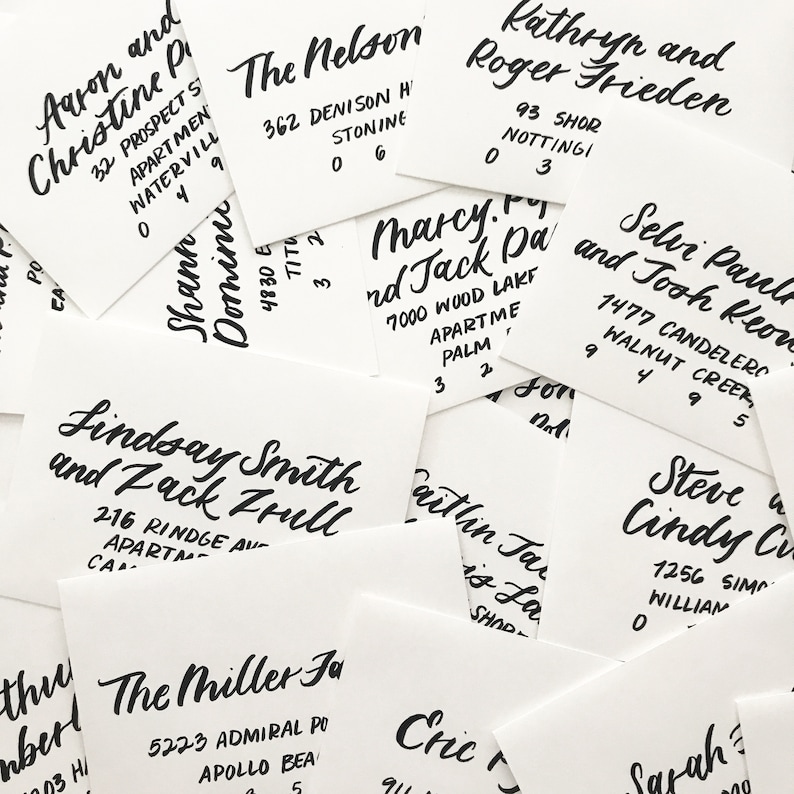 Aaron and
Christine
32 PROSPECT
APARTMEN
WATERVILL
0 4 9
The Nelson
362 DENISON H
STONING
0 6
Kathryn and
Roger Frieden
93 SHOR
NOTTING
0 3
Shann
Domini
4830 E
TITU
3 2
Marcy, Po
nd Jack Da
7000 WOOD LAKE
APARTME
PALM
3 2
Selvi Paul
and Josh Keon
1477 CANDELERO
WALNUT CREEK,
9 4 9 5
Lindsay Smith
and Zack Zrull
216 RINDGE AVE
APARTME
CAM
Caitlin
SHORE
Steve
Cindy
1256 SIMO
WILLIAM
0
The Miller Fa
5223 ADMIRAL PO
APOLLO BEA
3 5
Eric
911
thur
mberl
1203 HA
Sarah